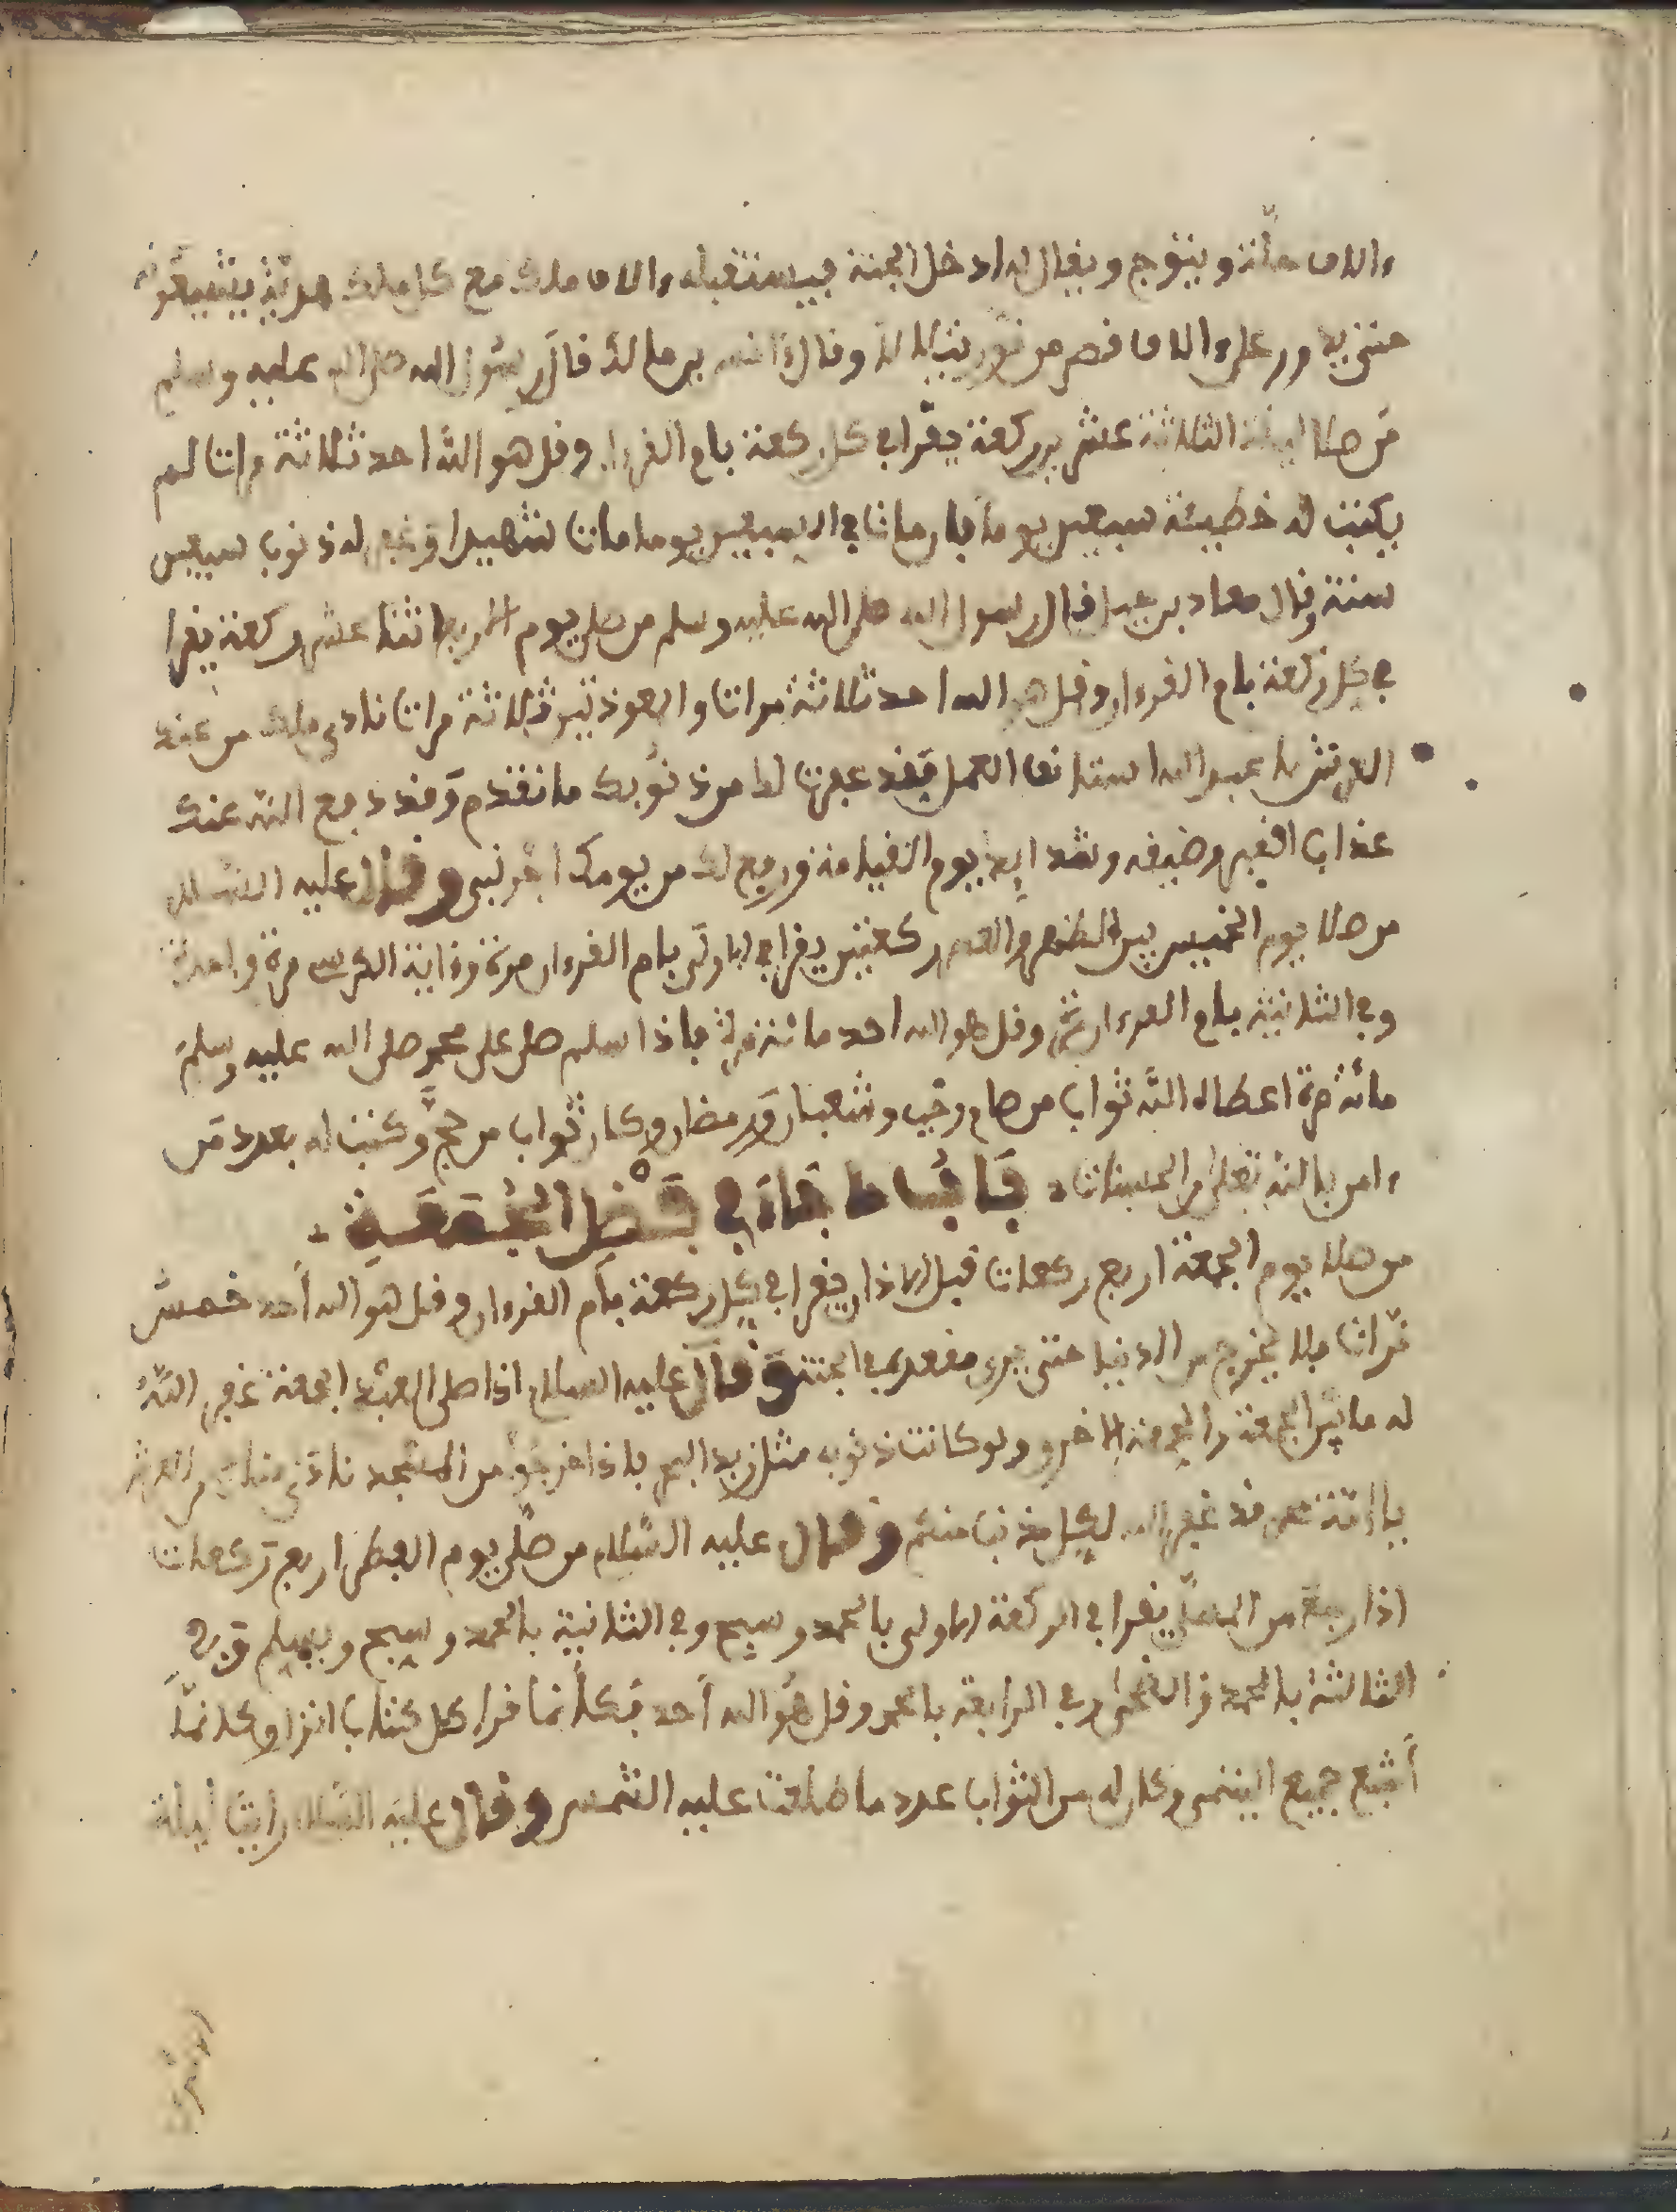 ءالاف حلة ويتوج ويقال له ادخل الجنة فيستقبله ءالاف ملك مع كل ملك هدية يشيعونه
حتى يدور على ءالاف قصر من نور يتلالا وقال انس بن مالك قال رسول الله صلى الله عليه وسلم
من صلا ليلة الثلاثة عشرين ركعة يقرا في كل ركعة بام القرءان وقل هو الله احد ثلاثة مرات لم
يكتب له خطيئة سبعين يوما فان مات في السبعين يوما مات شهيدا وغفر له ذنوب سبعين
سنة وقال معاد بن جبل قال رسول الله صلى الله عليه وسلم من صلى يوم الاربعا اثنتا عشر ركعة يقرا
في كل ركعة بام القرءان وقل هو الله احد ثلاثة مرات والمعوذتين ثلاثة مرات نادى ملك من عند
العرش يا عبد الله استانف العمل فقد غفرت لك من ذنوبك ما تقدم وقد دفع الله عنك
عذاب القبر وضيقه وشدايد يوم القيامة ورفع لك من يومك اجر نبي وقال عليه السلام
من صلا يوم الخميس بين الظهر والعصر ركعتين يقرا في الاولى بام القرءان مرة وءاية الكرسي مرة واحدة
وفي الثانية بام القرءان وقل هو الله احد مائة مرة فاذا سلم صلى على محمد صلى الله عليه وسلم
مائة مرة اعطاه الله ثواب من صام رجب وشعبان ورمضان وكان ثواب من حج وكتب له بعدد من
ءامن بالله تعلى من الحسنات باب ما جاء في فضل الجمعة
من صلا يوم الجمعة اربع ركعات قبل الاذان يقرا في كل ركعة بام القرءان وقل هو الله احد خمس
مرات فلا يخرج من الدنيا حتى يرى مقعده في الجنة وقال عليه السلام اذا صلى العبد الجمعة غفر الله
له ما بين الجمعة والجمعة الاخرى ولو كانت ذنوبه مثل زبد البحر فاذا خرجوا من المسجد نادى مناد من العرش
يا امة محمد قد غفر الله لكل مذنب منكم وقال عليه السلام من صلى يوم الفطر اربع ركعات
اذا رجع من المصلى يقرا في الركعة الاولى بالحمد وسبح وفي الثانية بالحمد وسبح ويسلم وفي
الثالثة بالحمد والضحى وفي الرابعة بالحمد وقل هو الله احد فكانما قرا كل كتاب انزل وكانما
اشبع جميع اليتمى وكان له من الثواب عدد ما طلعت عليه الشمس وقال عليه السلام رايت ليلة